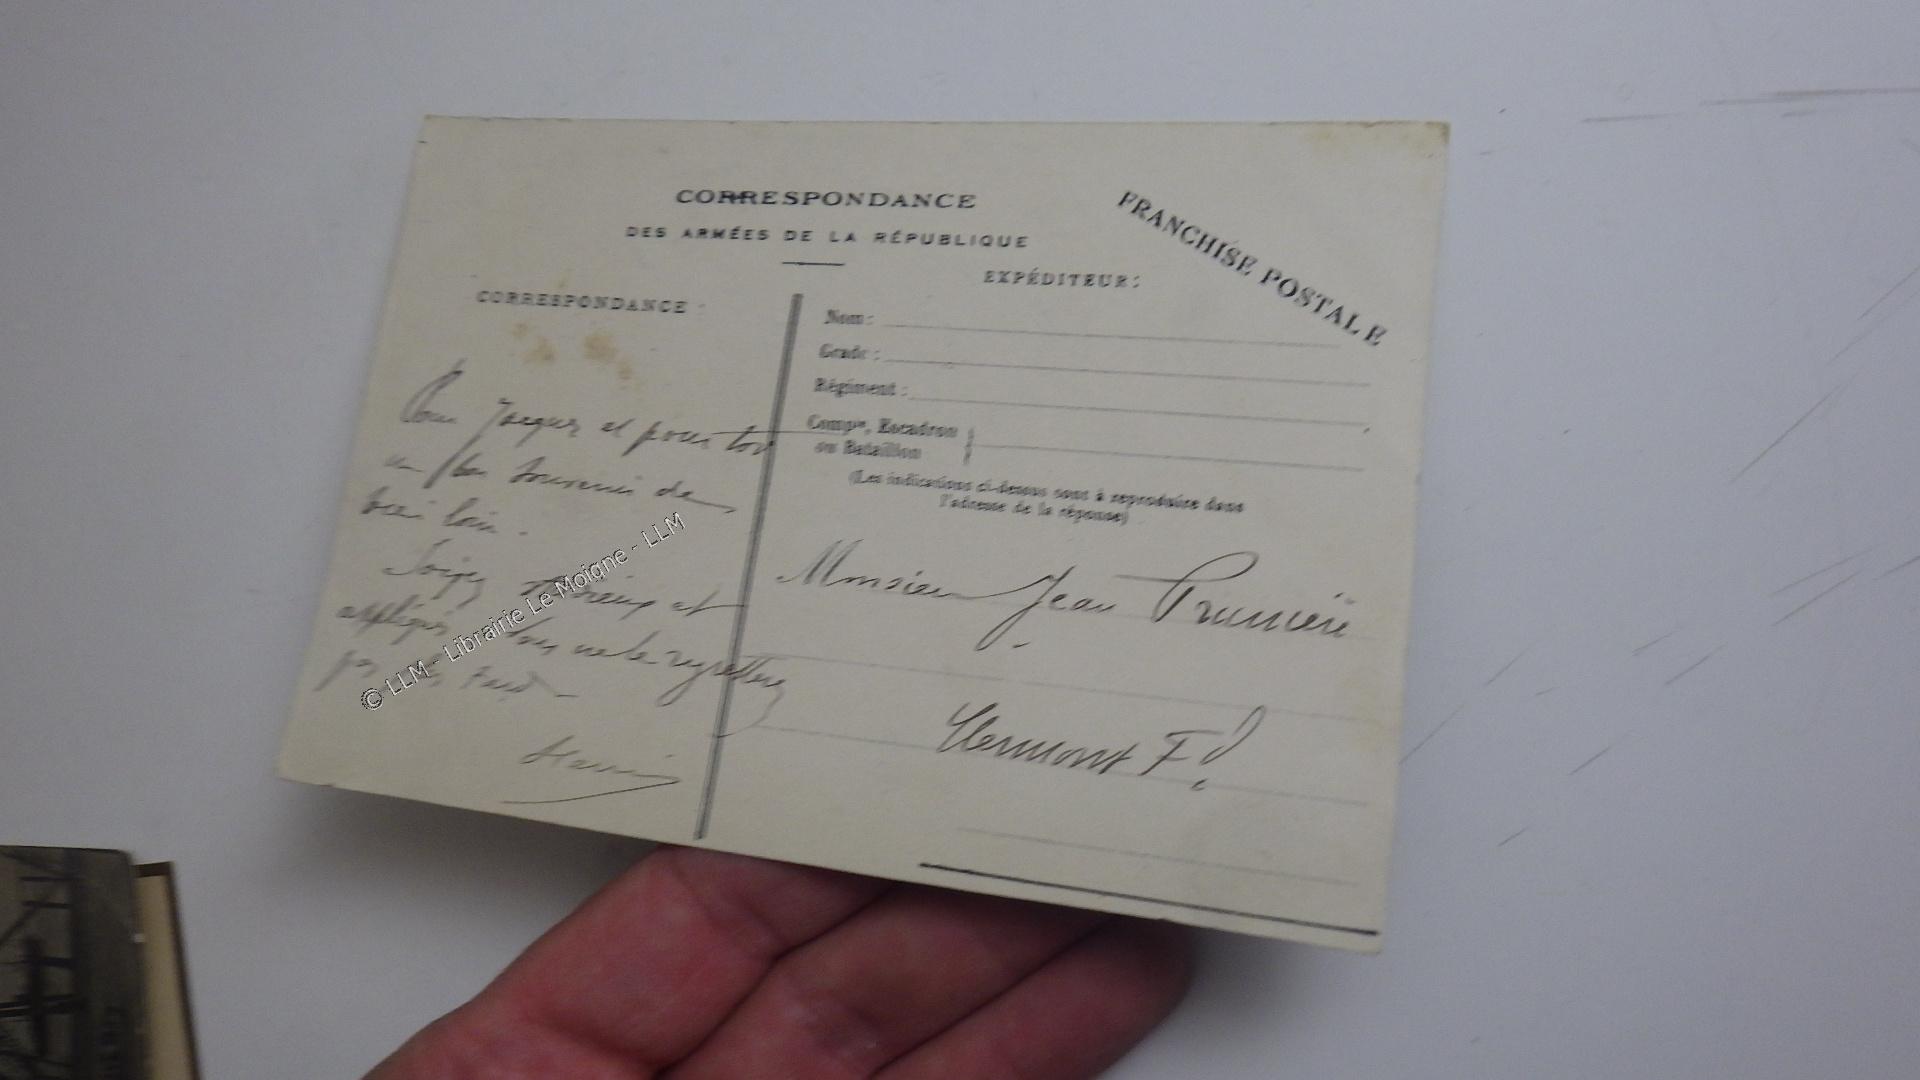 CORRESPONDANCE
DES ARMÉES DE LA RÉPUBLIQUE
FRANCHISE POSTALE
EXPÉDITEUR:
CORRESPONDANCE :
Nom :
Grade :
Régiment :
Compie, Escadron
ou Bataillon
(Les indications ci-dessus sont à reproduire dans
l'adresse de la réponse)
Pour Jacques et pour toi
un bon souvenir de
bien loin.
Soyez sérieux et
appliqués vous ne le regretterez
pas plus tard
Monsieur Jean
Clermont Fd
© LLM - Librairie Le Moigne - LLM